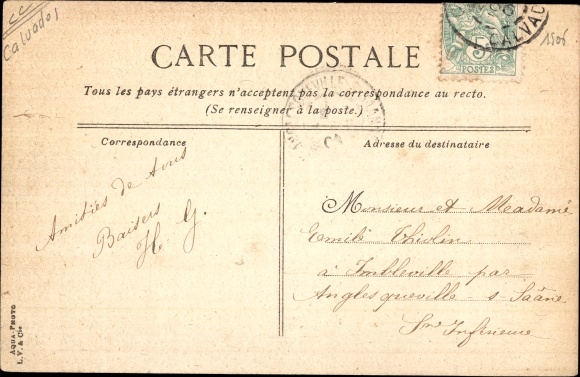 Calvados
1906
CALVAD
5
POSTES
CARTE POSTALE
Tous les pays étrangers n'acceptent pas la correspondance au recto.
(Se renseigner à la poste.)
Correspondance
Adresse du destinataire
Amitiés de tous
Baisers
H. G.
Monsieur et Madame
Emile Thiolin
à Imbleville par
Anglesqueville s Saâne
Sne Inférieure
AQUA-PHOTO
L. V. & Cie